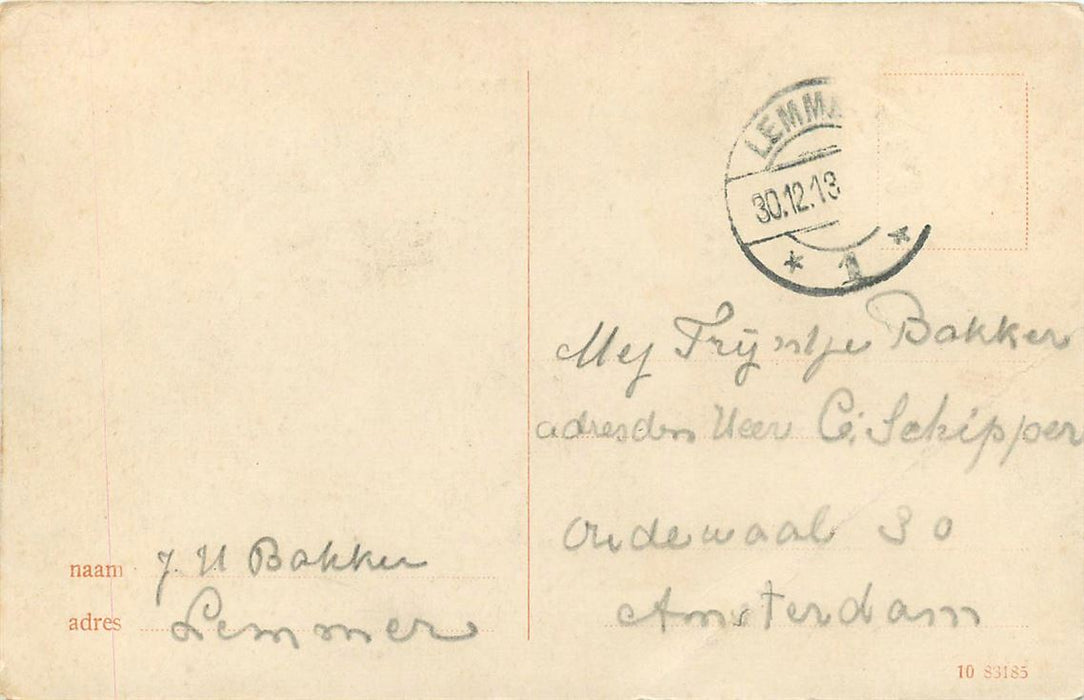 LEMM
30.12.13
1
Mej Trijntje Bakker
adres den Heer C. Schipper
Oudewaal 30
Amsterdam
naam J. H Bakker
adres Lemmer
10 83185